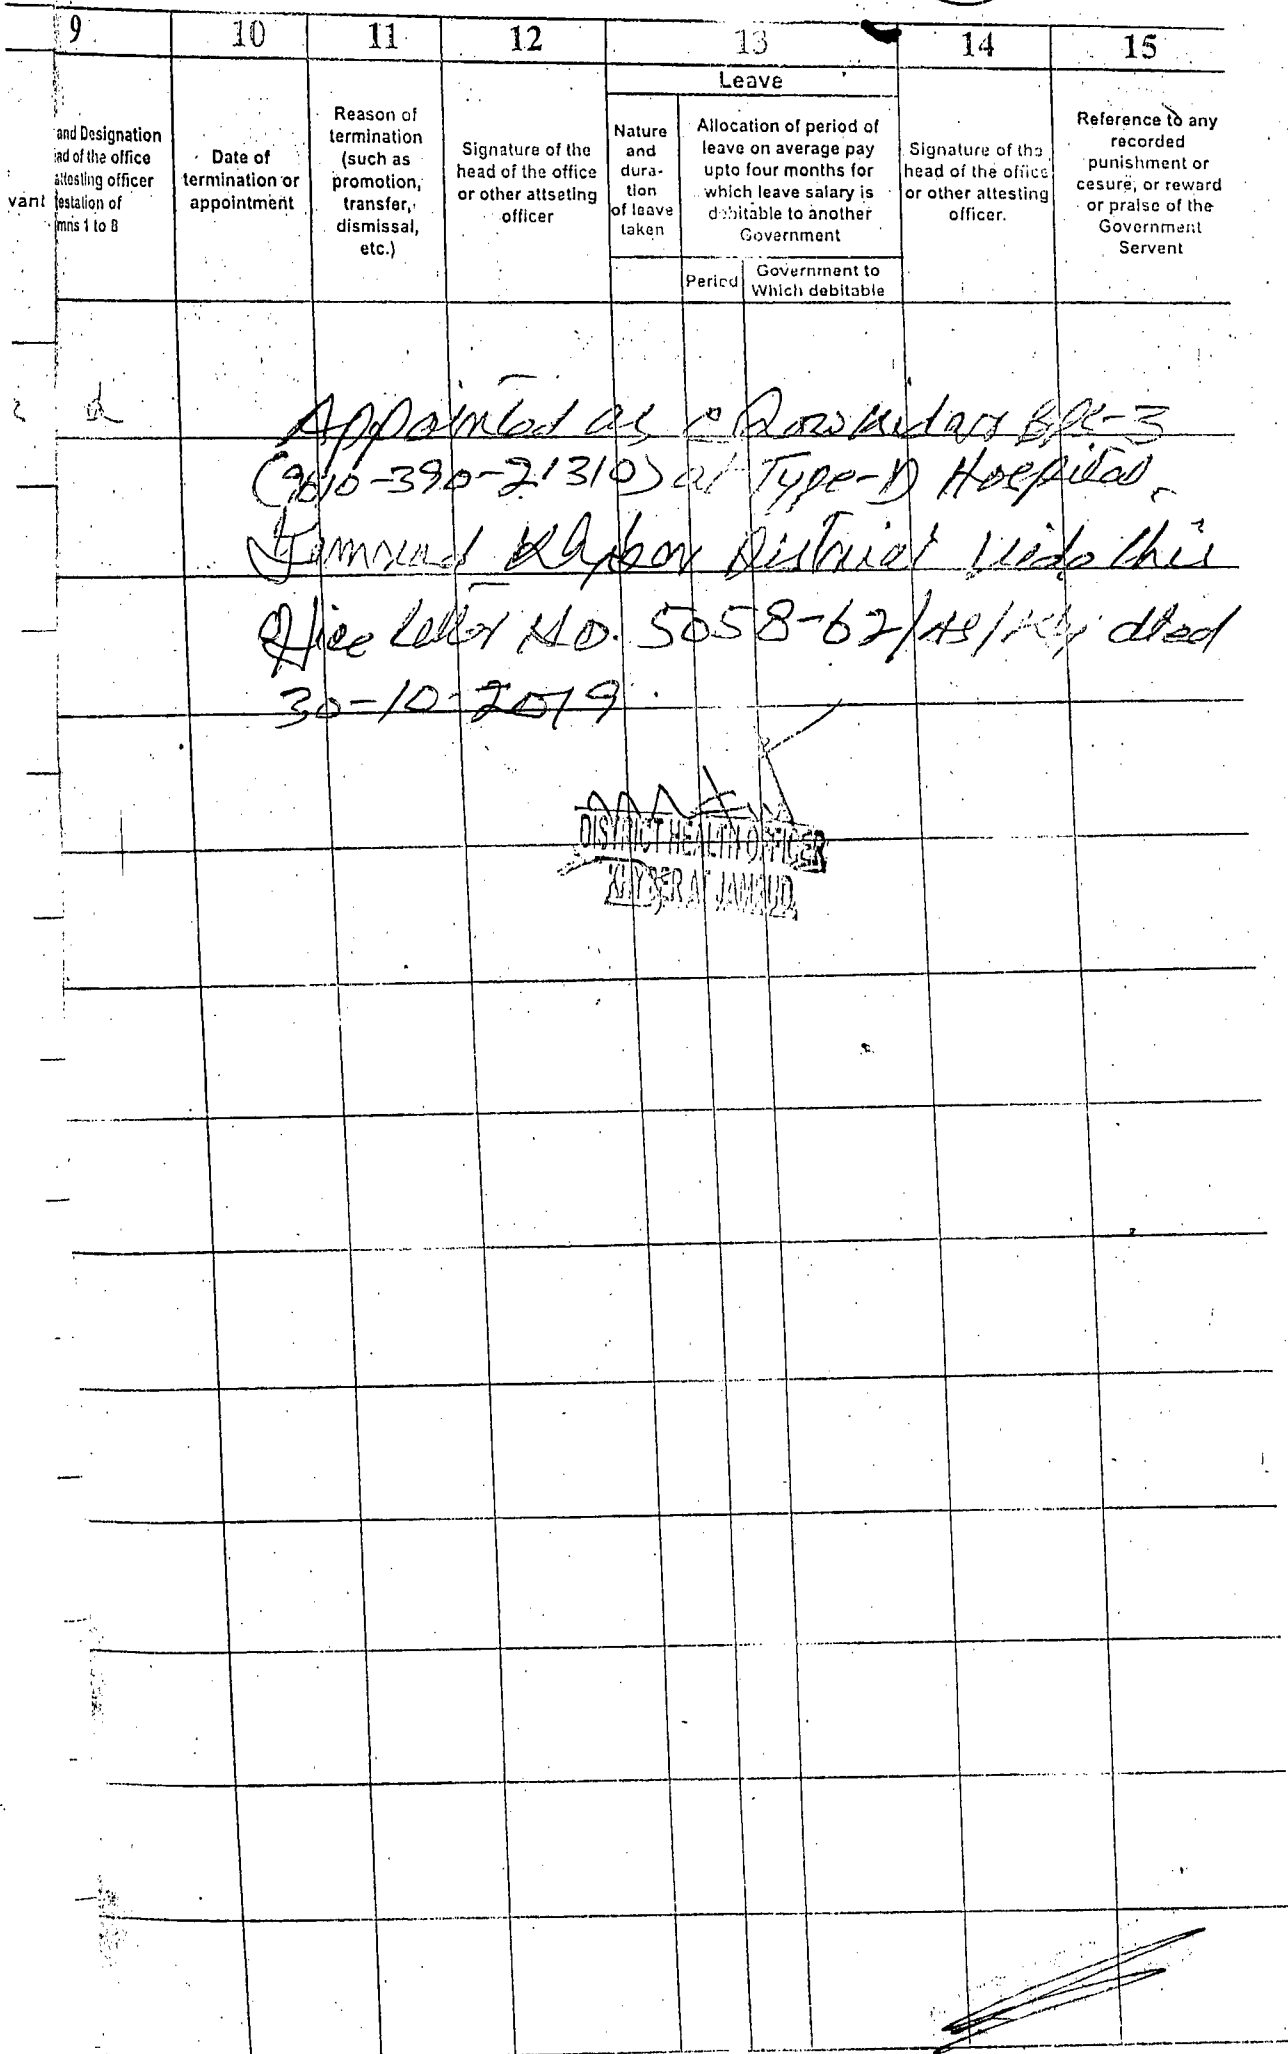 9 10 11 12 13 14 15
Leave
and Designation
ad of the office
attesting officer
vant
testation of
mns 1 to 8
Date of
termination or
appointment
Reason of
termination
(such as
promotion,
transfer,
dismissal,
etc.)
Signature of the
head of the office
or other attseting
officer
Nature
and
dura-
tion
of leave
taken
Allocation of period of
leave on average pay
upto four months for
which leave salary is
debitable to another
Government
Period
Government to
Which debitable
Signature of the
head of the office
or other attesting
officer.
Reference to any
recorded
punishment or
cesure, or reward
or praise of the
Government
Servent
Appointed as Chowkidar BPS-3
(9610-390-21310) at Type-D Hospital,
Jamrud Khyber District vide this
Office Letter No. 5058-62/ dted
30-10-2019.
DISTRICT HEALTH OFFICER
KHYBER AT JAMRUD.